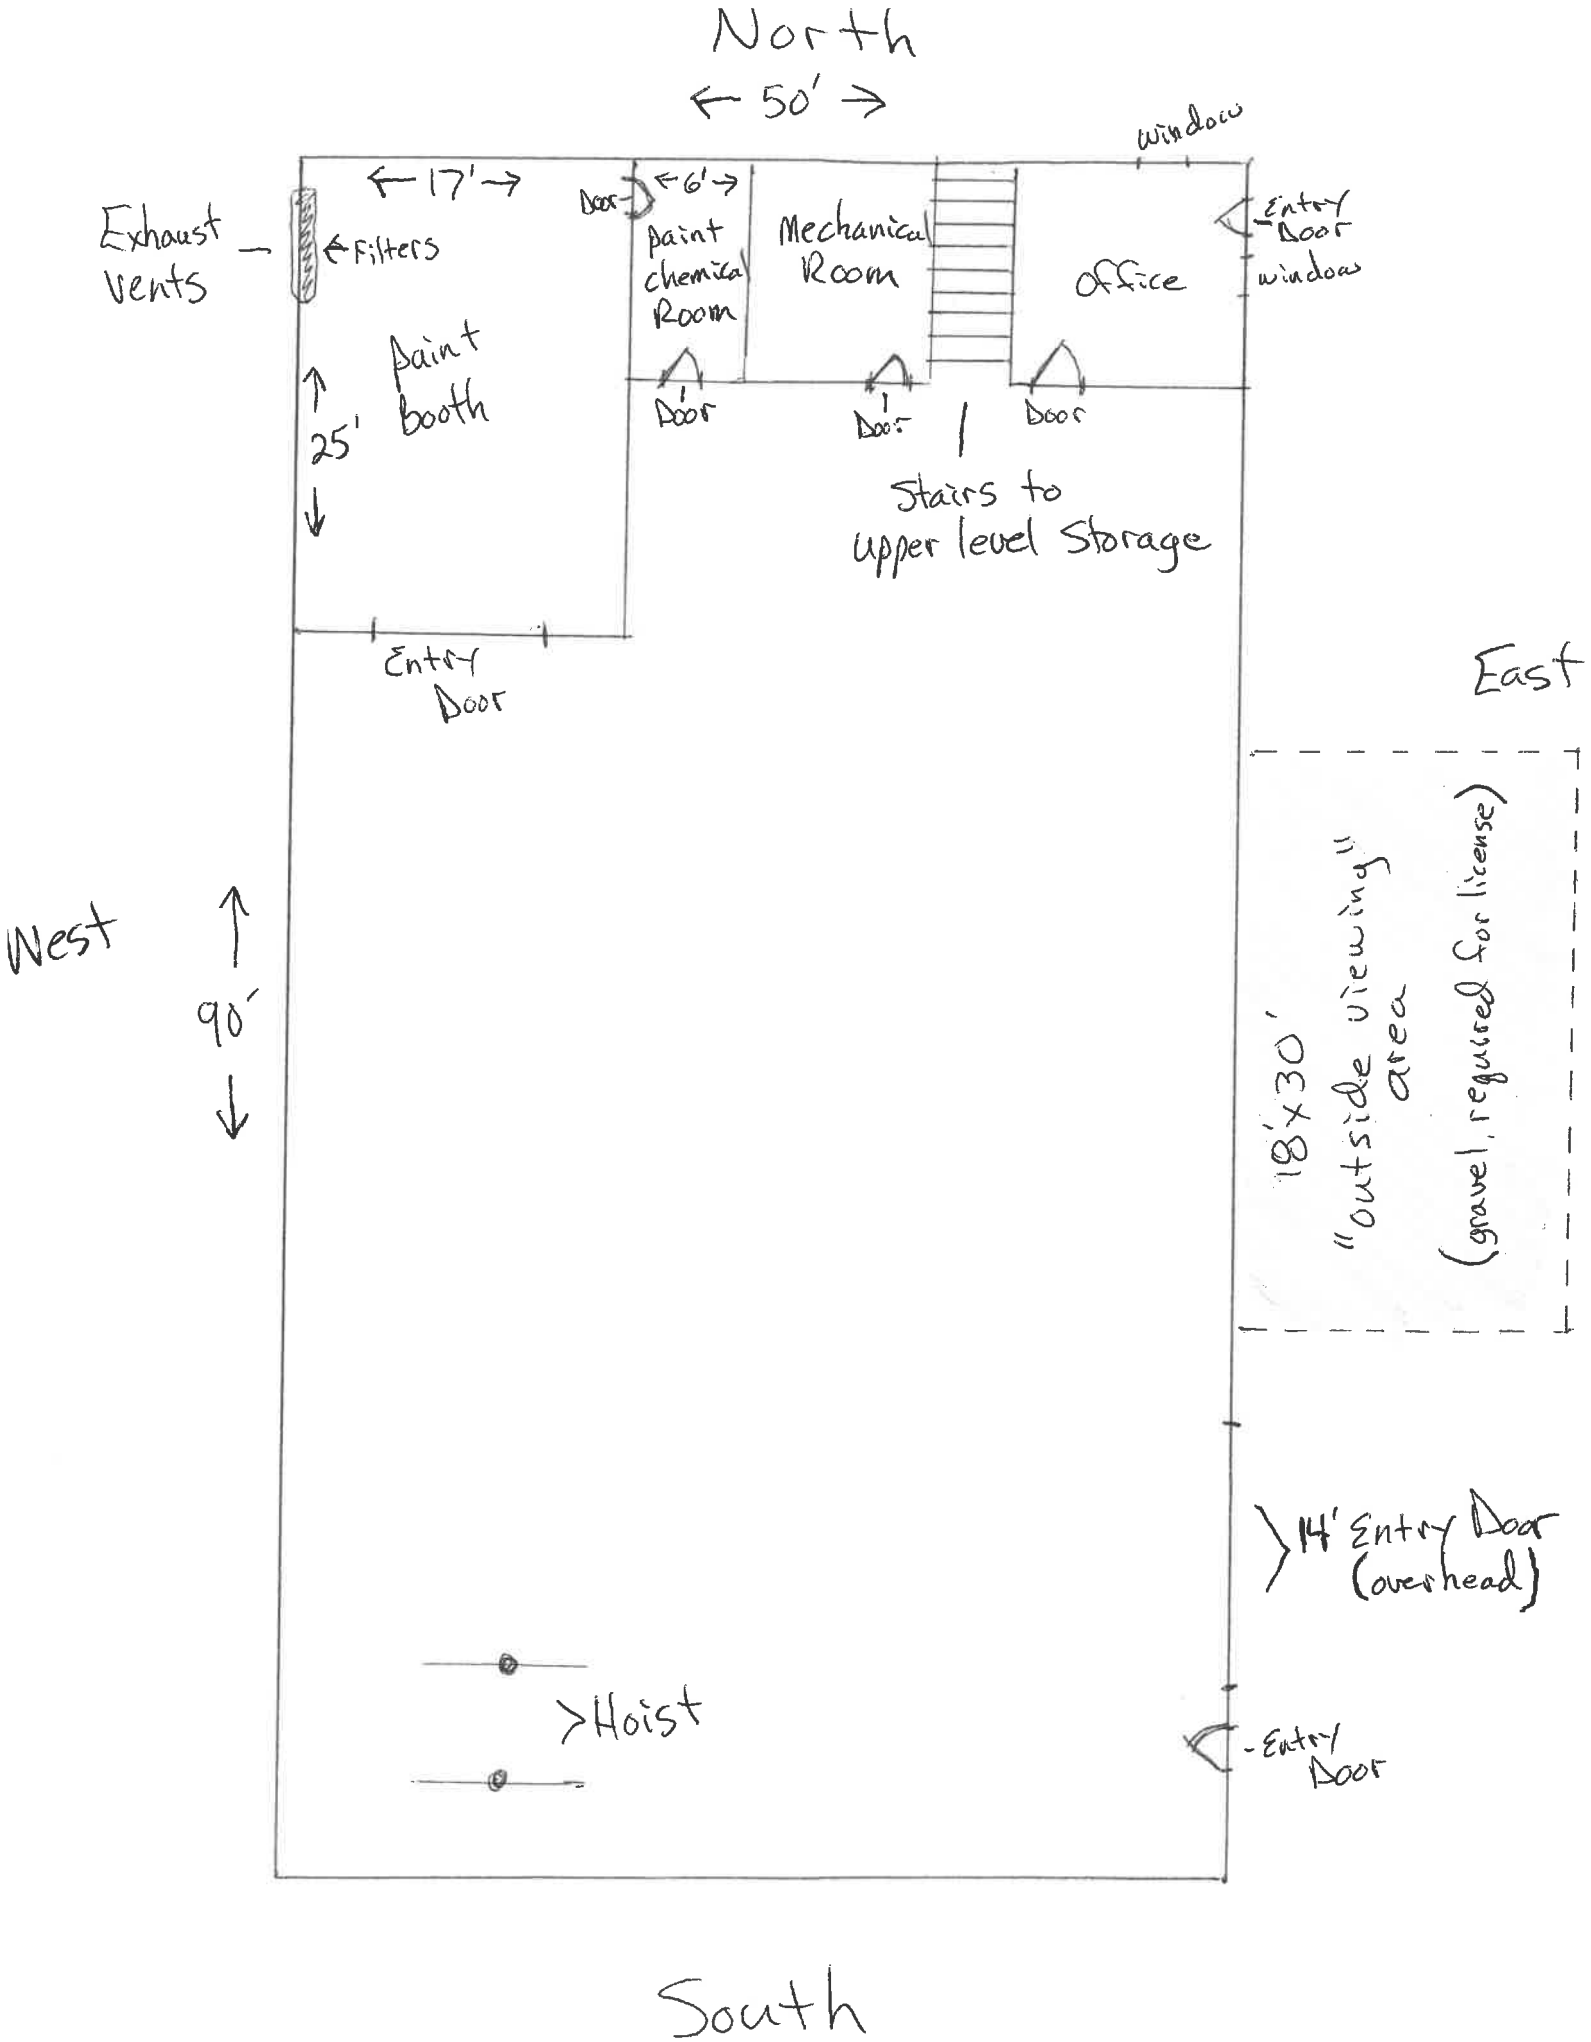 North
← 50' →
window
← 17' →
Door
← 6' →
Entry
Door
window
Exhaust
vents
← Filters
paint
chemical
Room
Mechanical
Room
office
paint
booth
25'
Door
Door
Door
Stairs to
upper level Storage
Entry
Door
East
West
90'
18'x30'
"outside viewing"
area
(gravel, required for license)
14' Entry Door
(overhead)
Hoist
Entry
Door
South